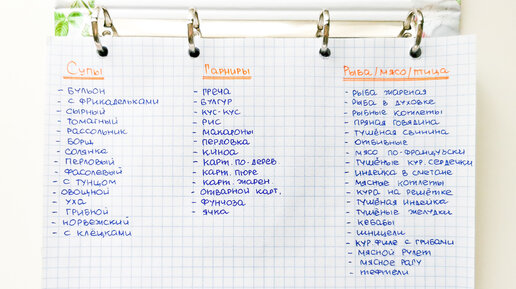 Супы
- Бульон
- с фрикадельками
- сырный
- томатный
- рассольник
- борщ
- солянка
- перловый
- фасолевый
- с тунцом
- овощной
- уха
- грибной
- норвежский
- с клёцками
Гарниры
- греча
- булгур
- кус-кус
- рис
- макароны
- перловка
- киноа
- карт. по-дерев
- карт. пюре
- карт. жарен.
- отварной карт.
- фунчоза
- ячка
Рыба/мясо/птица
- рыба жареная
- рыба в духовке
- рыбные котлеты
- пряная говядина
- тушёная свинина
- отбивные
- мясо по-французски
- тушёные кур. сердечки
- индейка в сметане
- мясные котлеты
- кура на решётке
- тушёная индейка
- тушёные желудки
- кебабы
- шницели
- кур. филе с грибами
- мясной рулет
- мясное рагу
- тефтели